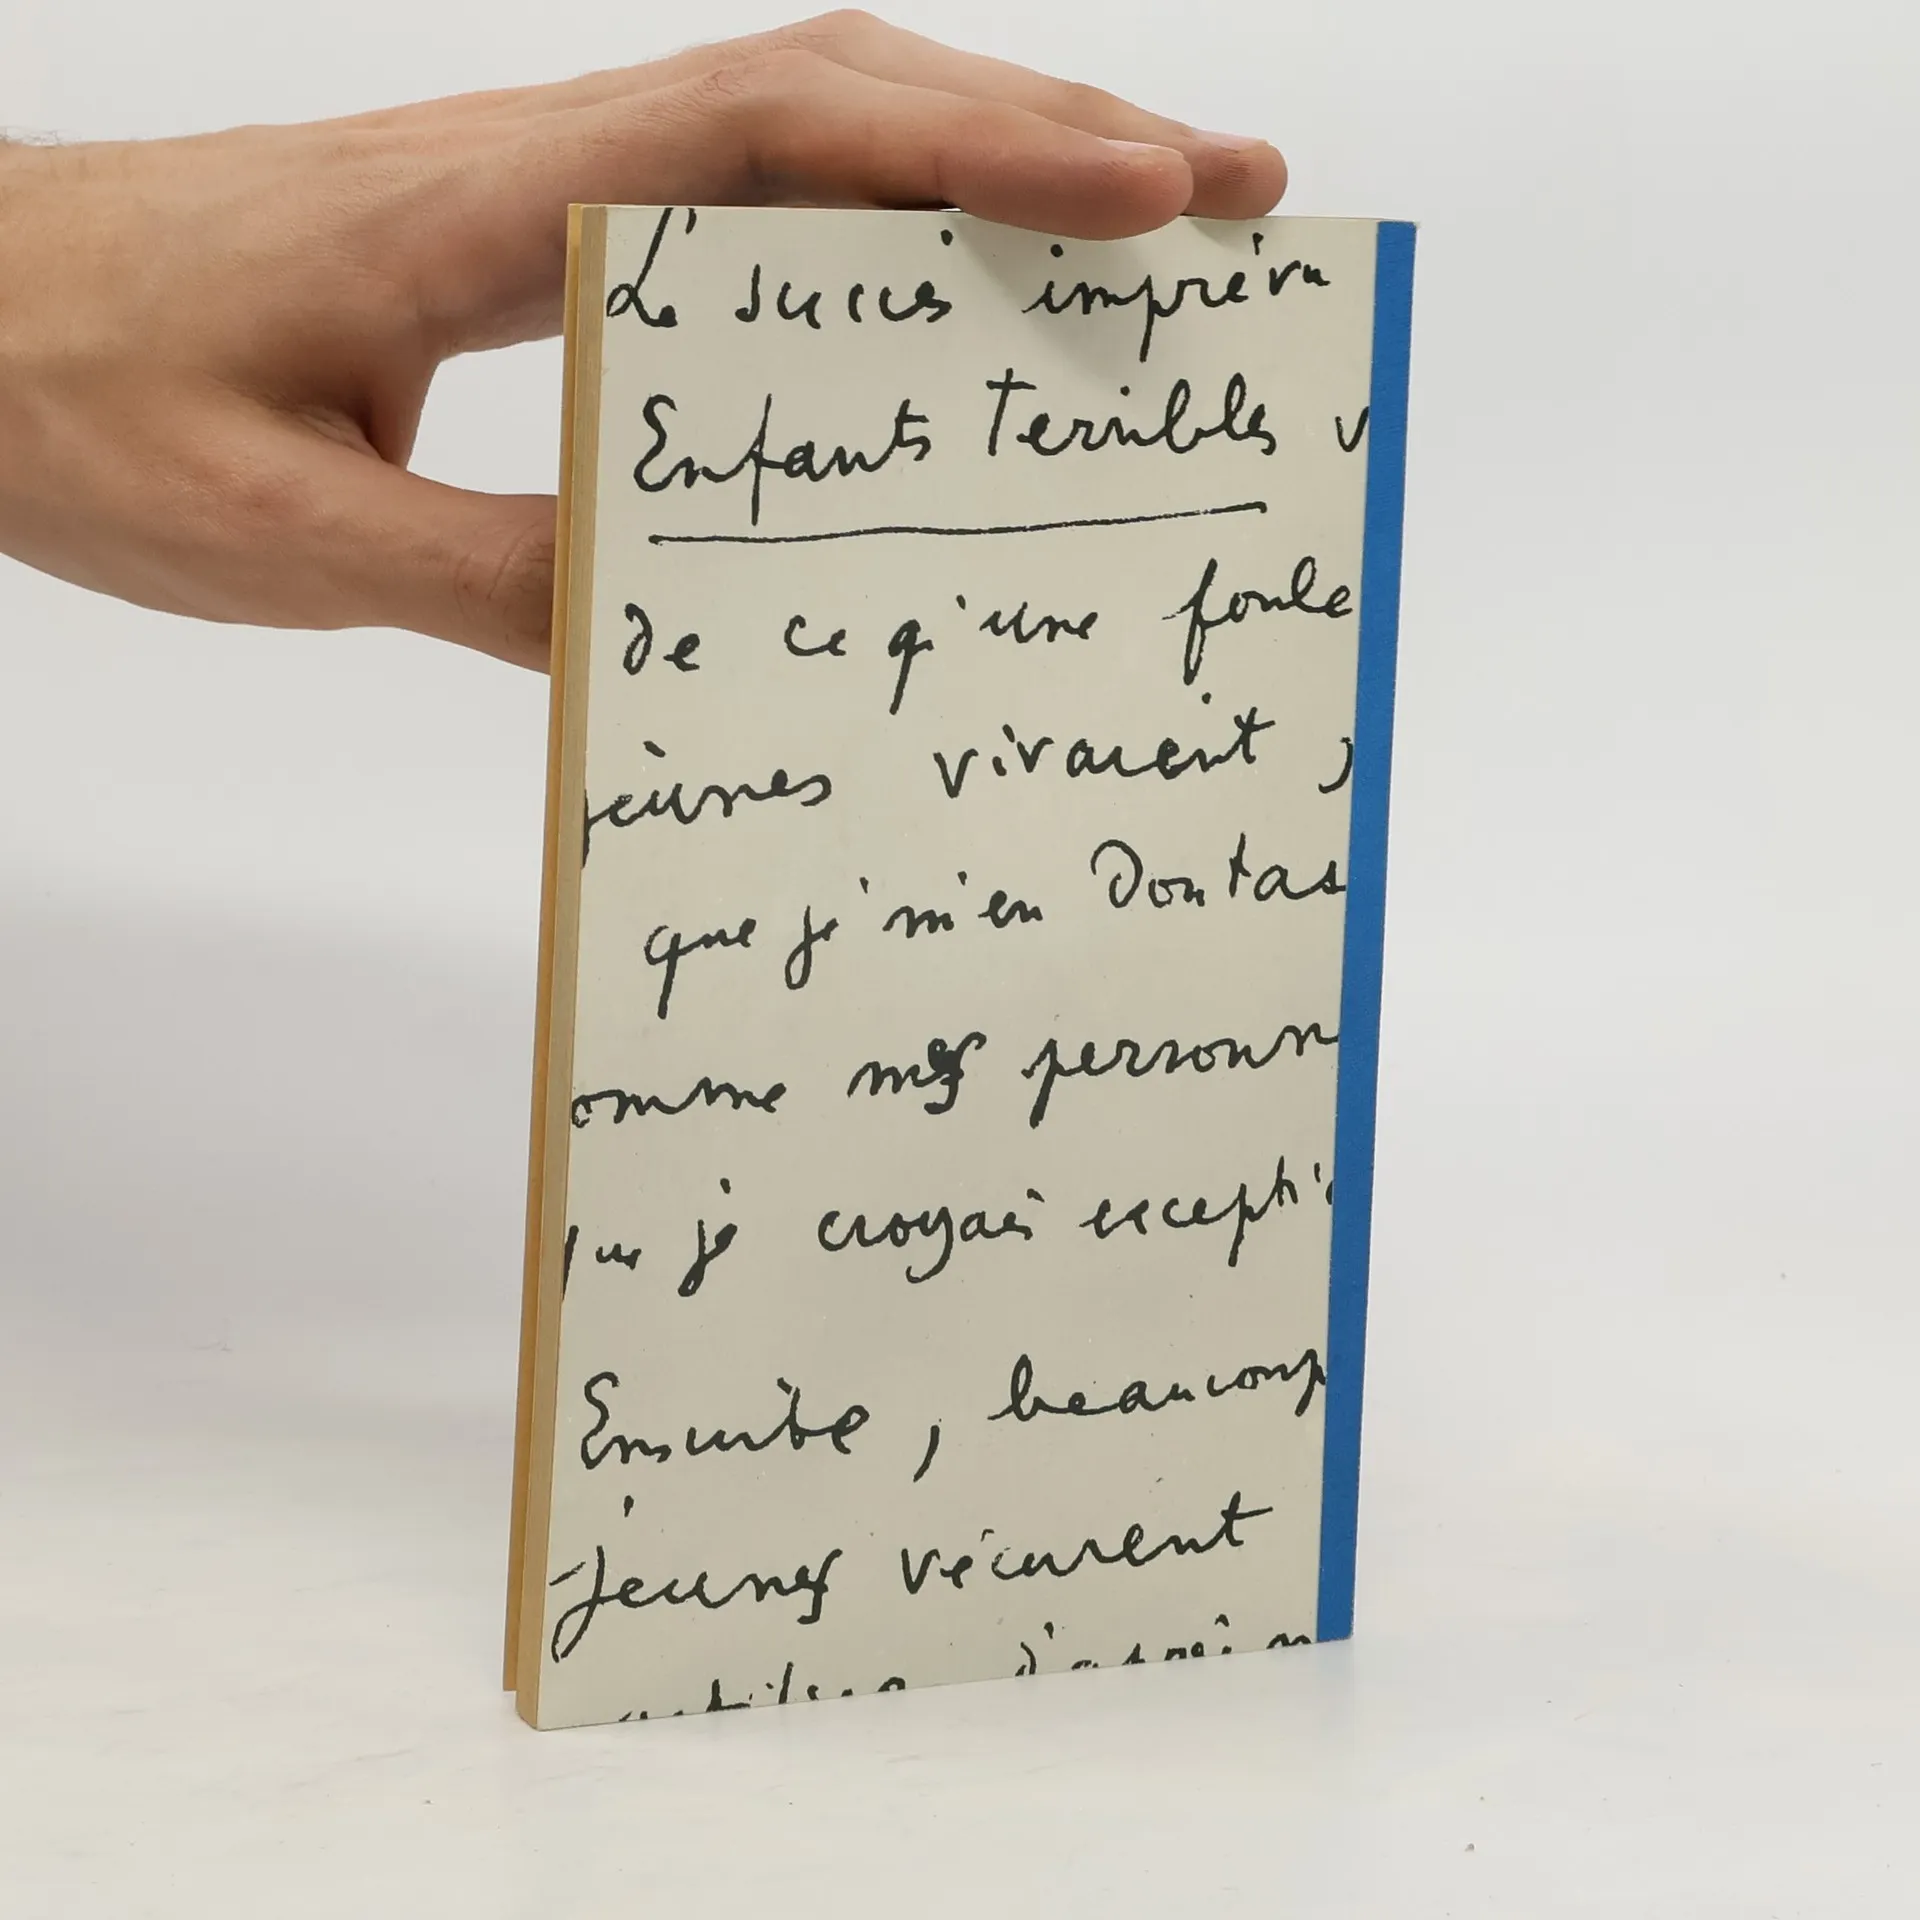 Le succès imprévu
Enfants Terribles v
de ce qu'une foule
jeunes vivaient,
que je m'en doutas
omme mes personn
que je croyais excepti
Ensuite, beaucoup
jeunes vécurent